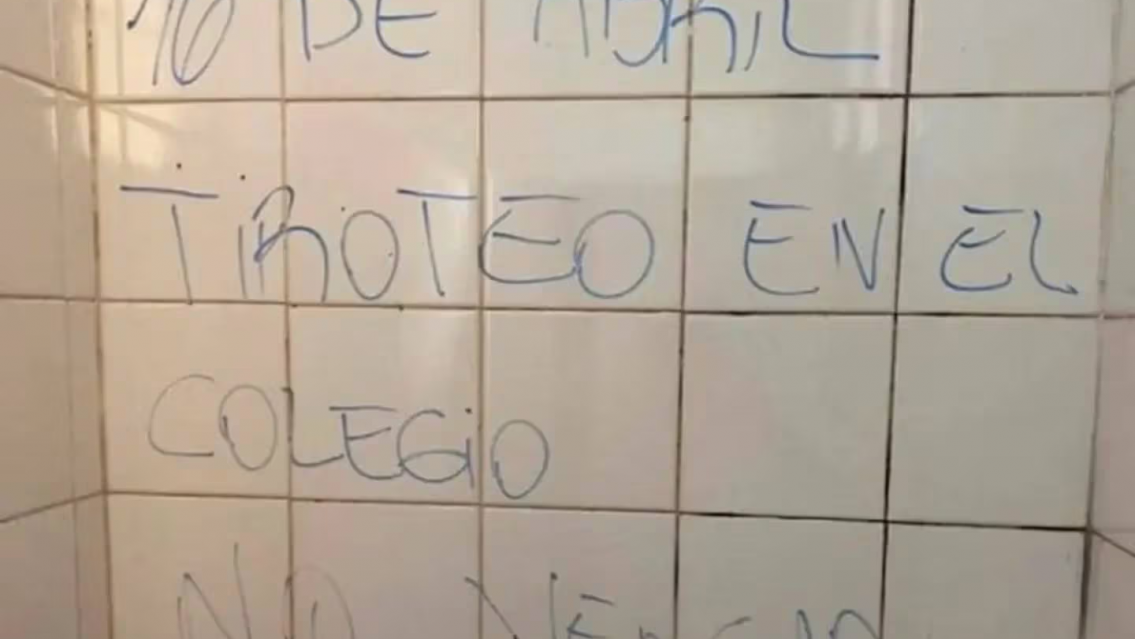 16 DE ABRIL
TIROTEO EN EL
COLEGIO
NO VENGAN